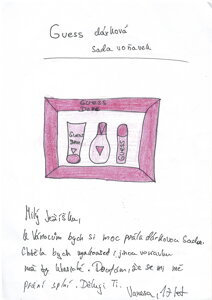 Guess dárková
sada voňavek
GUESS
DARE
GUESS
DARE
GUESS
Milý Ježíšku,
k Vánocům bych si moc přála dárkovou sadu.
Chtěla bych vyzkoušet i jinou voňavku
než ty klasické. Doufám, že se mi mé
přání splní. Děkuji Ti.
Vanesa, 17 let